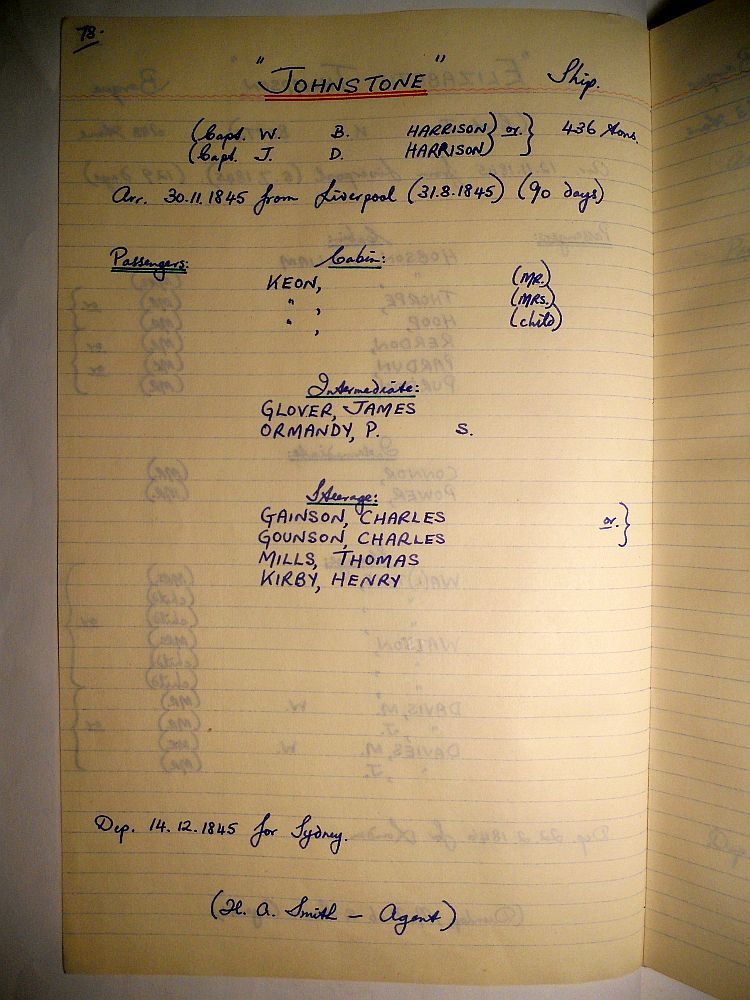 78.
"JOHNSTONE" Ship.
(Capt. W. B. HARRISON) or. } 436 tons.
(Capt. J. D. HARRISON)
Arr. 30.11.1845 from Liverpool (31.8.1845) (90 days)
Passengers: Cabin:
KEON, (MR.)
" , (MRS.)
" , (child)
Intermediate:
GLOVER, JAMES
ORMANDY, P. S.
Steerage:
GAINSON, CHARLES or. }
GOUNSON, CHARLES
MILLS, THOMAS
KIRBY, HENRY
Dep. 14.12.1845 for Sydney.
(H. A. Smith – Agent)